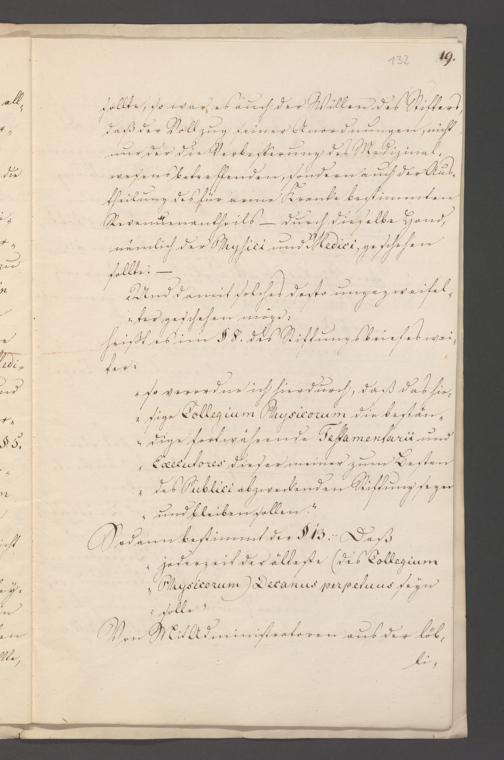 132 19.
sollte, so war es auch der Willen des Stifters,
daß der Vollzug seiner Anordnungen, nicht
nur der die Verbesserung des Medizinal-
wesens betreffenden, sondern auch der Aus-
theilung des für arme Kranke bestimmten
Revenüenantheils — durch dieselbe Hand,
nämlich der Physici und Medici, geschehen
sollte. —
„Und damit solches desto ungezweifel-
„ter geschehen möge:
heißt es im § 8. des Stiftungsbriefes wei-
ter:
„so verordne ich hierdurch, daß das hie-
„sige Collegium Physicorum die bestän-
„dige fortwährende Testamentarii und
„Executores dieser meiner zum Besten
„des Publici abzweckenden Stiftung seyen
„und bleiben sollen."
Sodann bestimmt der § 13.: Daß
„jederzeit der älteste (des Collegium
„Physicorum) Decanus perpetuus seyn
„solle"
Von Mit Administratoren aus der löb-
li-
all-
die
und
§ 5.